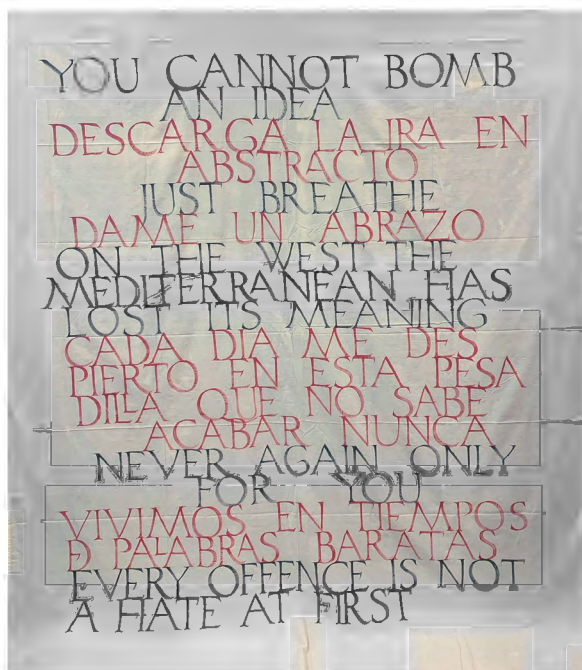 YOU CANNOT BOMB
AN IDEA
DESCARGA LA IRA EN
ABSTRACTO
JUST BREATHE
DAME UN ABRAZO
ON THE WEST THE
MEDITERRANEAN HAS
LOST ITS MEANING
CADA DIA ME DES
PIERTO EN ESTA PESA
DILLA QUE NO SABE
ACABAR NUNCA
NEVER AGAIN ONLY
FOR YOU
VIVIMOS EN TIEMPOS
Đ PALABRAS BARATAS
EVERY OFFENCE IS NOT
A HATE AT FIRST